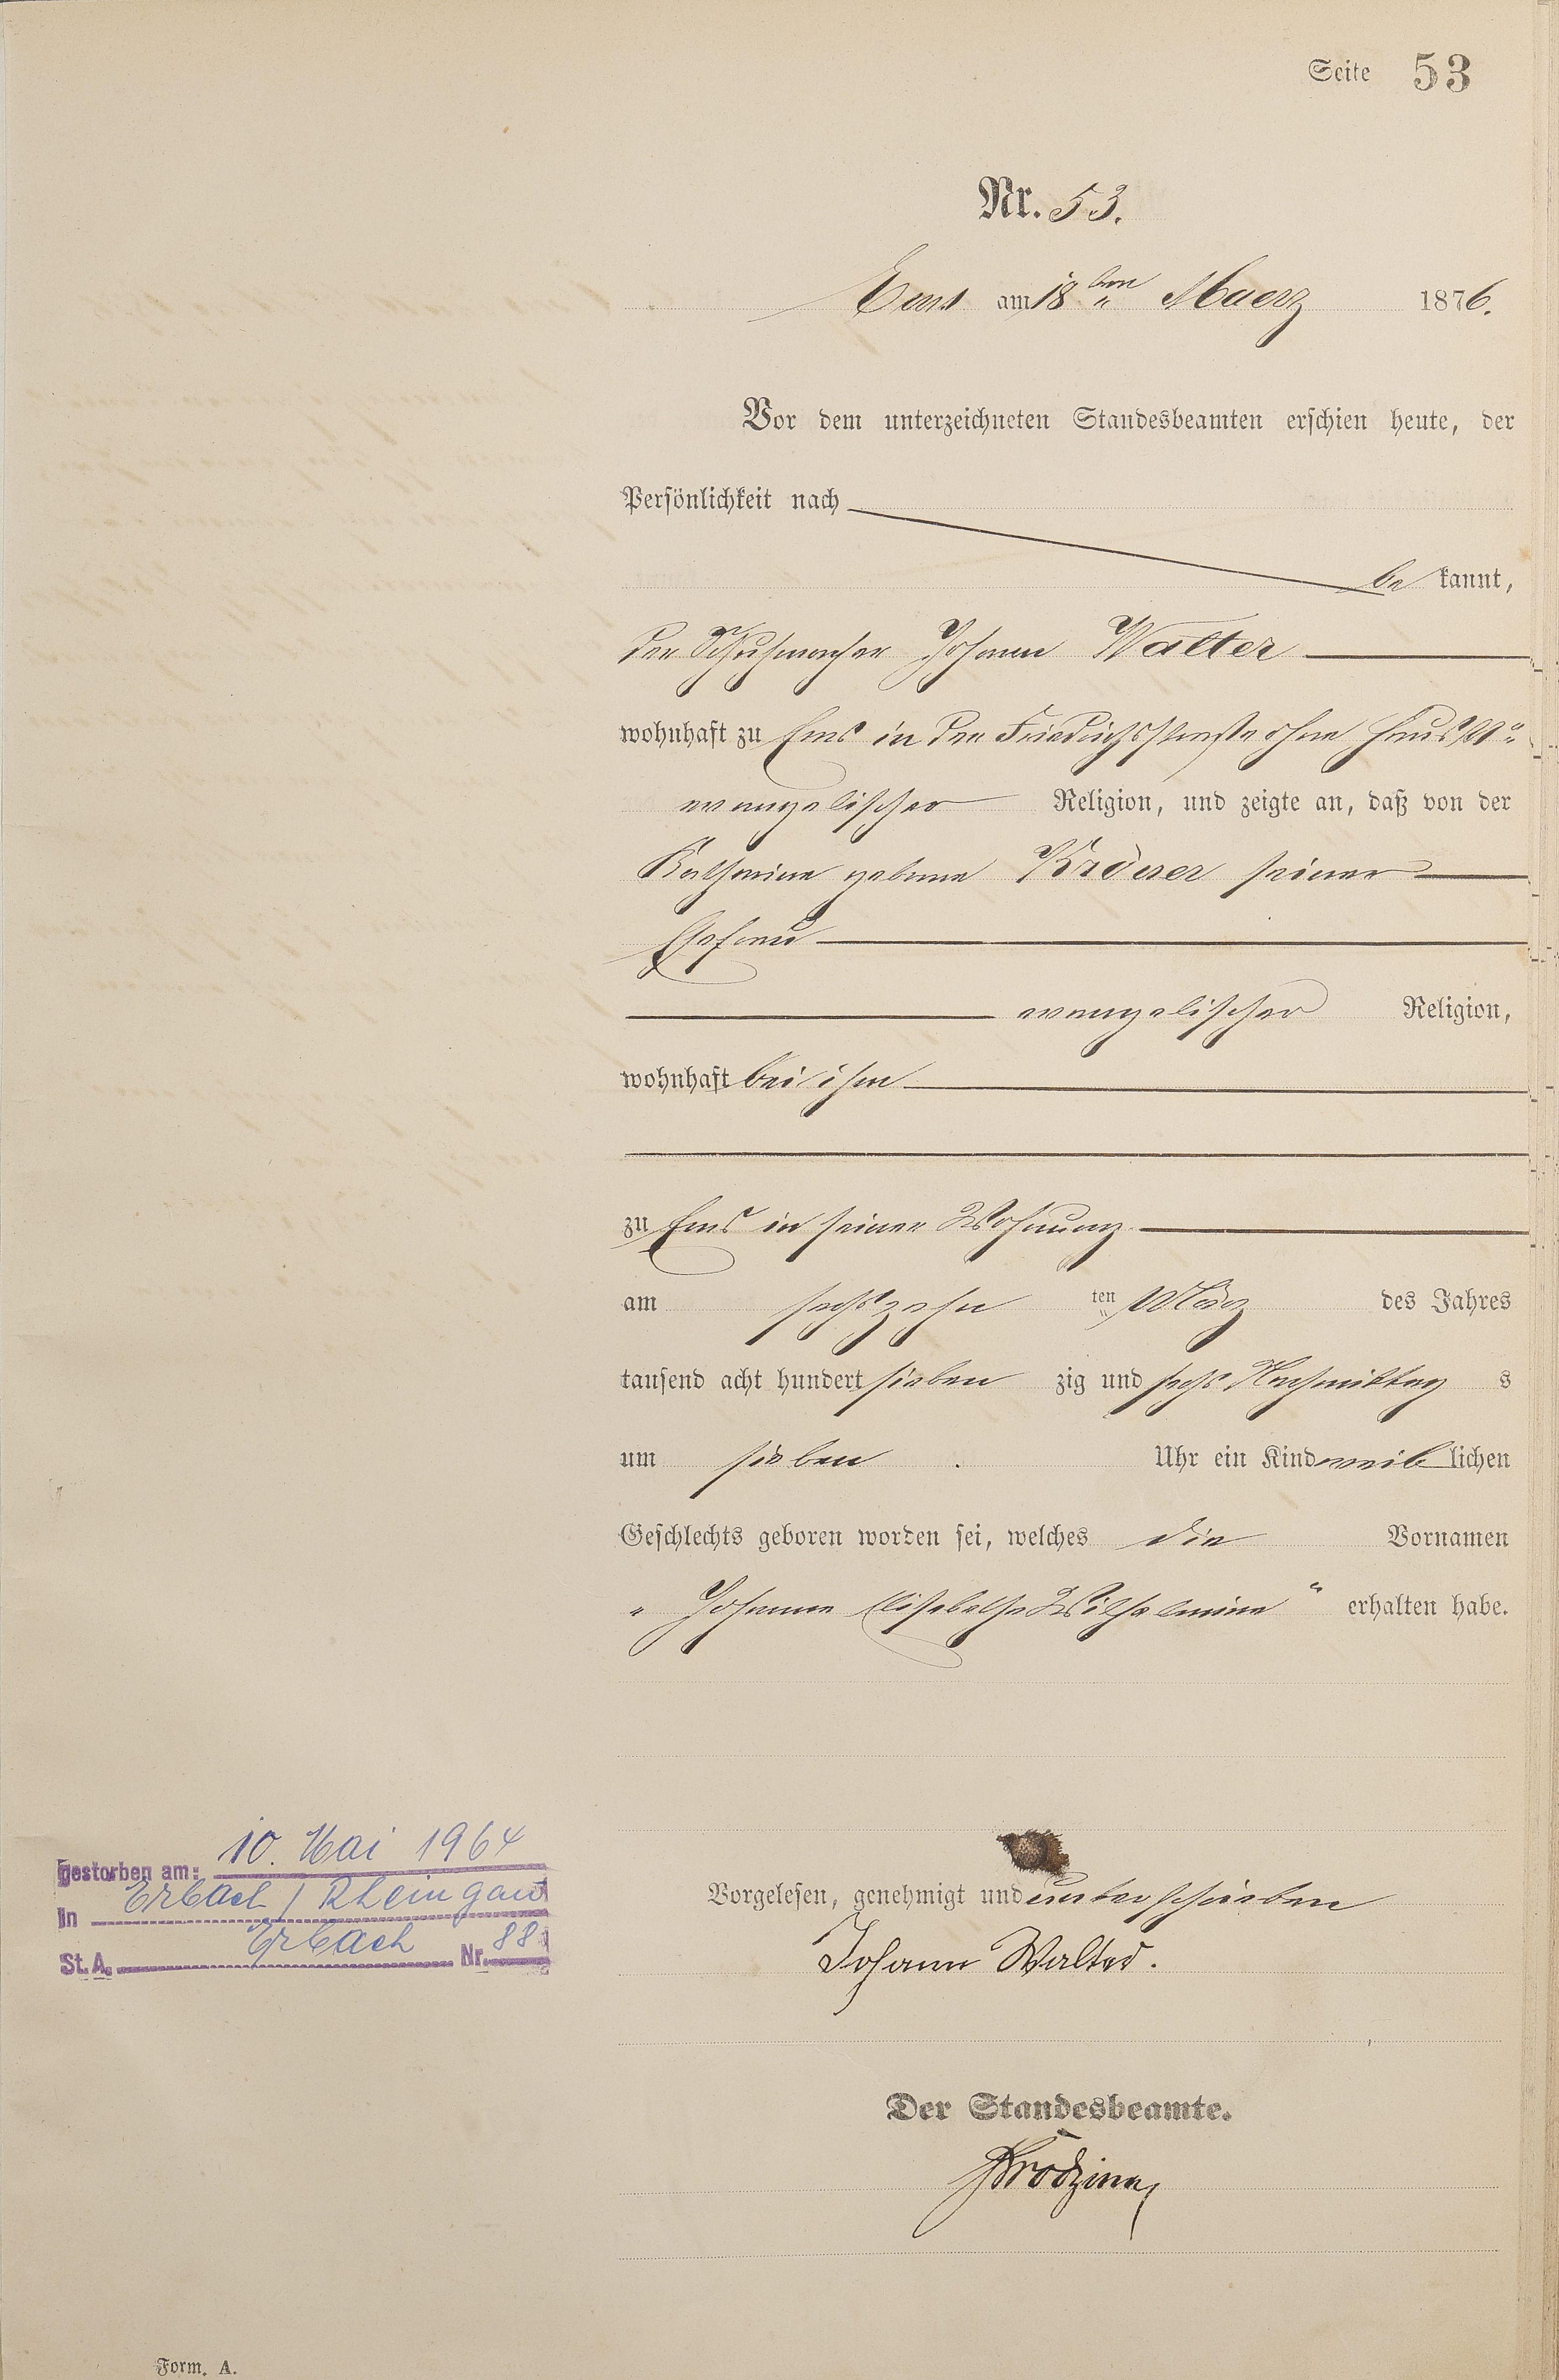 Seite 53
Nr. 53.
Ems am 18ten Maerz 1876.
Vor dem unterzeichneten Standesbeamten erschien heute, der
Persönlichkeit nach
be kannt,
der Schuhmacher Johann Walter
wohnhaft zu Ems in der Friedrichsstraße ohne Haus No
evangelischer Religion, und zeigte an, daß von der
Katharine geborne seiner
Ehefrau
evangelischer Religion,
wohnhaft bei ihm
zu Ems in seiner Wohnung
am sechszehn ten März des Jahres
tausend acht hundert sieben zig und sechs Nachmittag s
um sieben Uhr ein Kind weib lichen
Geschlechts geboren worden sei, welches die Vornamen
"Johanna Elisabetha Wilhelmine" erhalten habe.
Vorgelesen, genehmigt und unterschrieben
Johann Walter.
Der Standesbeamte.
gestorben am: 10. Mai 1964
In Erbach / Rheingau
St. A. Erbach Nr. 88
Form. A.